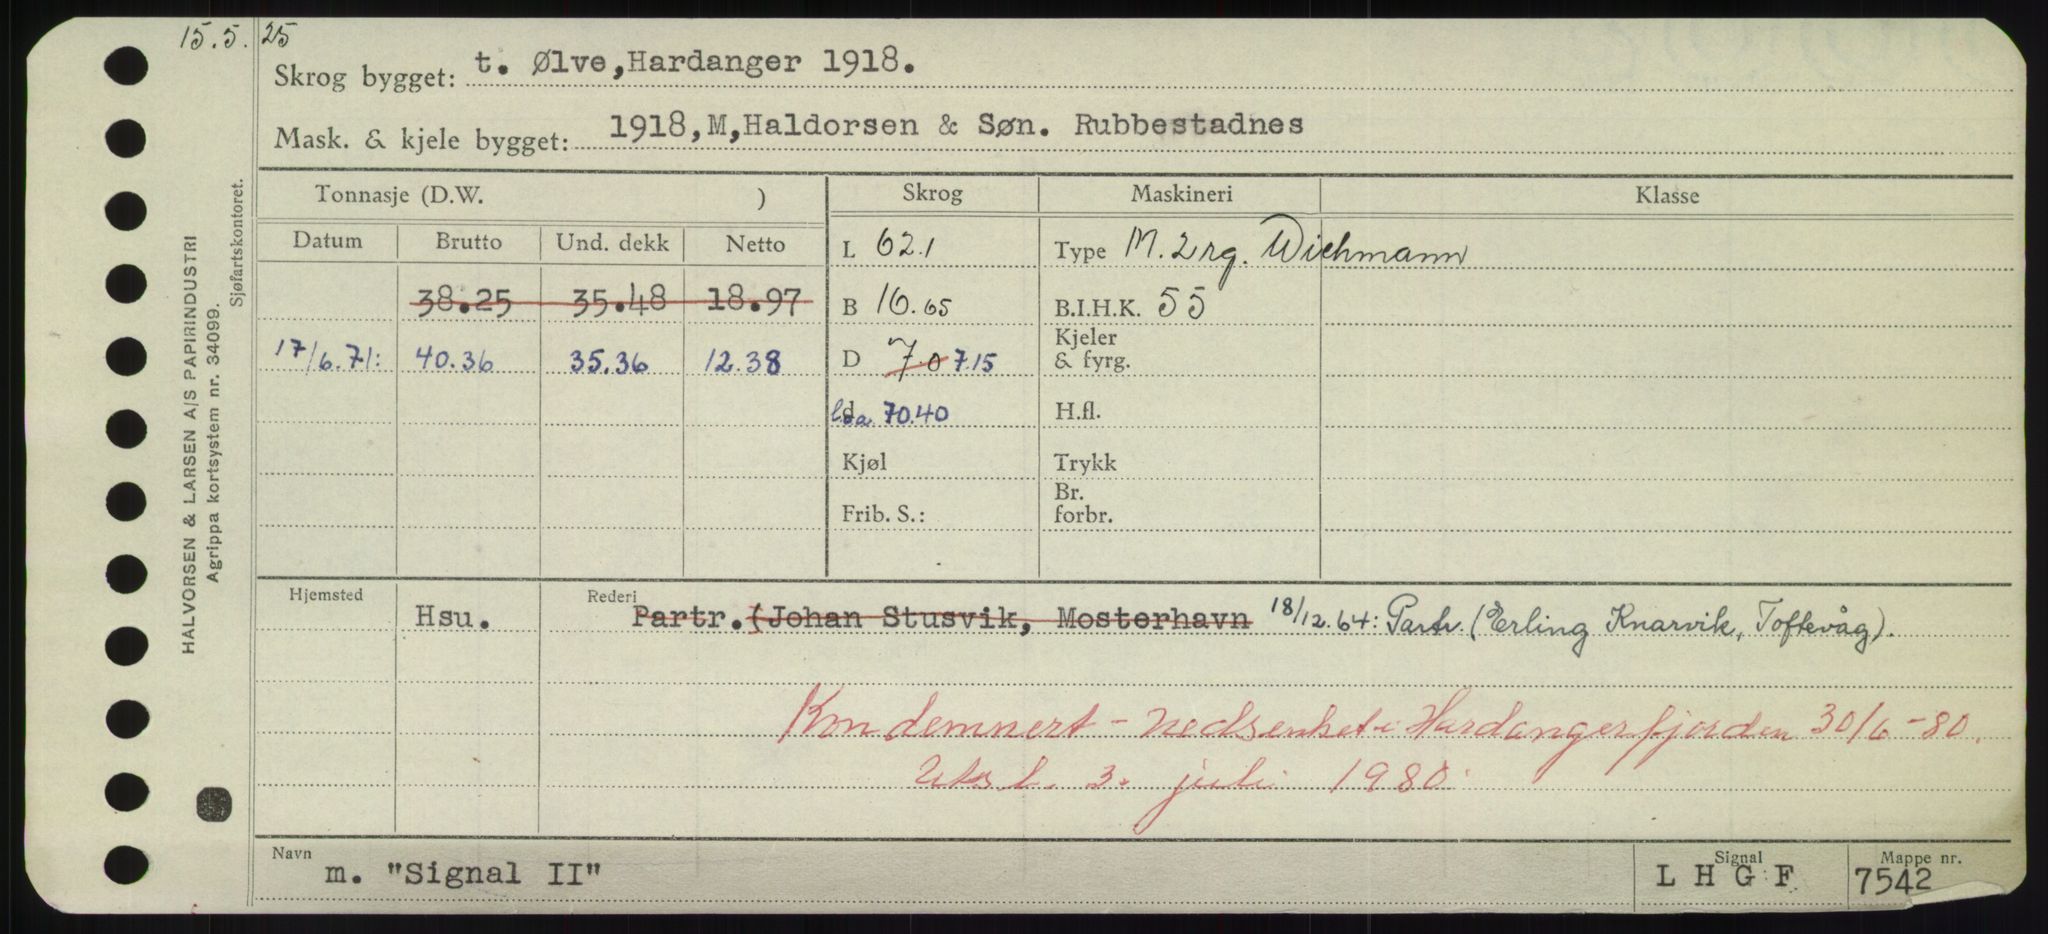 15.5.25
Skrog bygget: t. Ølve,Hardanger 1918.
Mask. & kjele bygget: 1918,M,Haldorsen & Søn. Rubbestadnes
HALVORSEN & LARSEN A/S PAPIRINDUSTRI
Agrippa kortsystem nr. 34099.
Sjøfartskontoret.
Tonnasje (D.W. ) Skrog Maskineri Klasse
Datum Brutto Und. dekk Netto
L 62.1 Type M. 2 rg. Wichmann
38.25 35.48 18.97 B 16.65 B.I.H.K. 55
17/6.71: 40.36 35.36 12.38 D 7.0 7.15 Kjeler & fyrg.
l.o.a. 70.40 H.fl.
Kjøl Trykk
Frib. S.: Br. forbr.
Hjemsted Rederi
Hsu. Partr.(Johan Stusvik, Mosterhavn 18/12.64: Partr (Erling Knarvik, Toftevåg).
Kondemnert - nedsenket i Hardangerfjorden 30/6-80.
3. juli 1980.
Navn Signal Mappe nr.
m. "Signal II" L H G F 7542